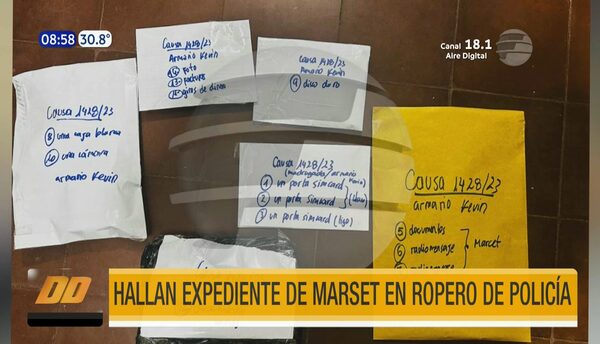 08:58 30.8°
Canal 18.1
Aire Digital
Causa 1428/23
Armario Kevin
14 foto
13 factura
giros de dinero
Causa 1428/23
Armario Kevin
9 disco duro
Causa 1428/23
8 una caja blanca
10 una cámara
armario Kevin
Causa 1428/23
armario
1 un porta simcard
2 un porta simcard
3 un porta simcard (tigo)
Causa 1428/23
armario Kevin
5 documentos
6 radiomensaje
Marcet
HALLAN EXPEDIENTE DE MARSET EN ROPERO DE POLICÍA